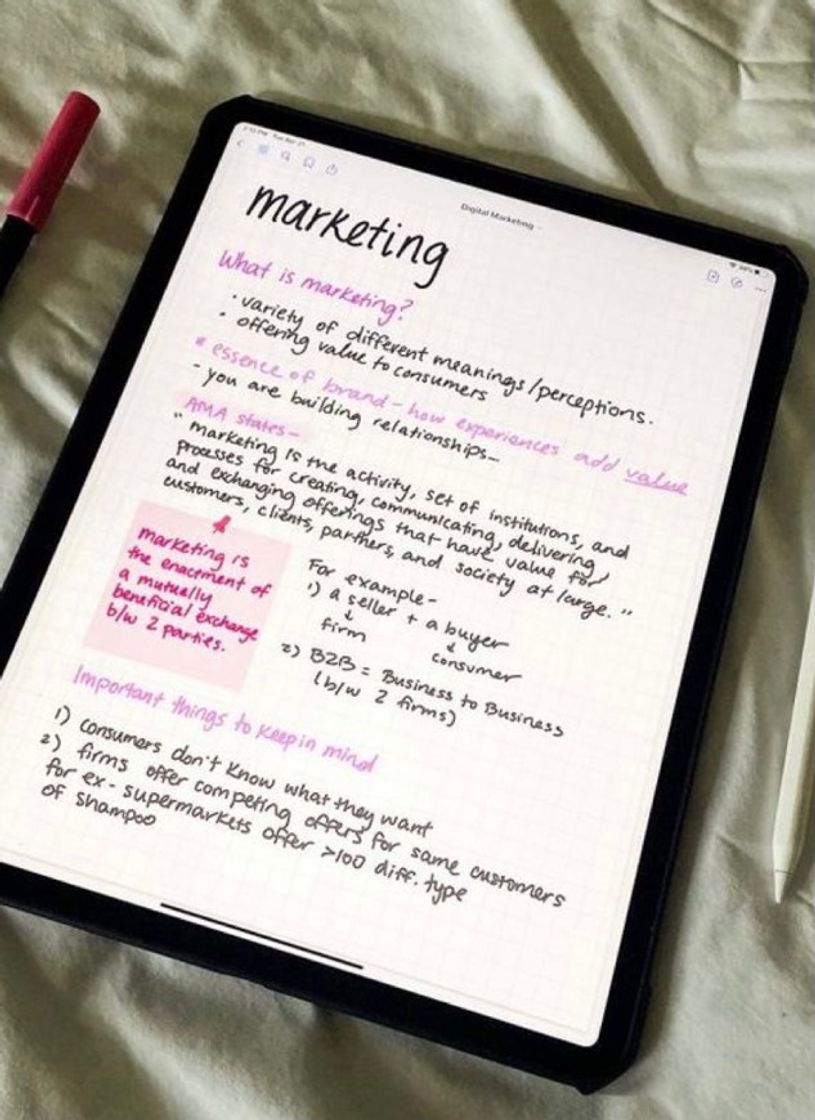 2:13 PM Tue Apr 21
Digital Marketing
marketing
What is marketing?
· variety of different meanings/perceptions.
· offering value to consumers
* essence of brand - how experiences add value
- you are building relationships-
AMA states-
"marketing is the activity, set of institutions, and
processes for creating, communicating, delivering,
and exchanging offerings that have value for
customers, clients, partners, and society at large."
marketing is
the enactment of
a mutually
beneficial exchange
b/w 2 parties.
For example-
1) a seller + a buyer
↓ ↓
firm consumer
2) B2B = Business to Business
(b/w 2 firms)
Important things to keep in mind
1) consumers don't know what they want
2) firms offer competing offers for same customers
for ex - supermarkets offer >100 diff. type
of shampoo